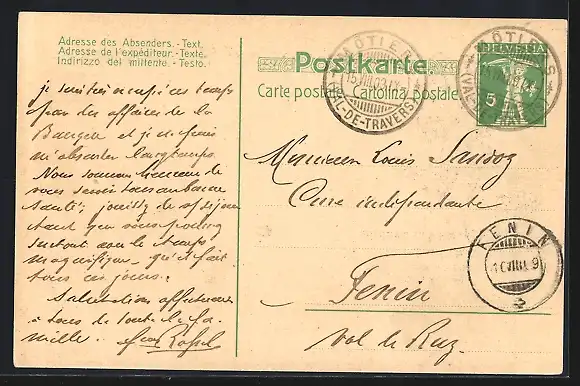 Adresse des Absenders.-Text.
Adresse de l'expéditeur.-Texte.
Indirizzo del mittente.-Testo.
Postkarte.
Carte postale. Cartolina postale.
HELVETIA
5
MÔTIERS
(VAL-DE-TRAVERS)
MÔTIERS
je suis
affaires de la
Banque et je ne puis
m'absenter longtemps.
Nous sommes heureux de
vous savoir tous en bonne
santé; jouissez de ce séjour
tant que vous pourrez
surtout avec le temps
magnifique qu'il fait
tous ces jours.
Salutations affectueuses
à tous de toute la fa
mille.
Monsieur Louis Sandoz
Cure indépendante
Fenin
Val de Ruz.
FENIN